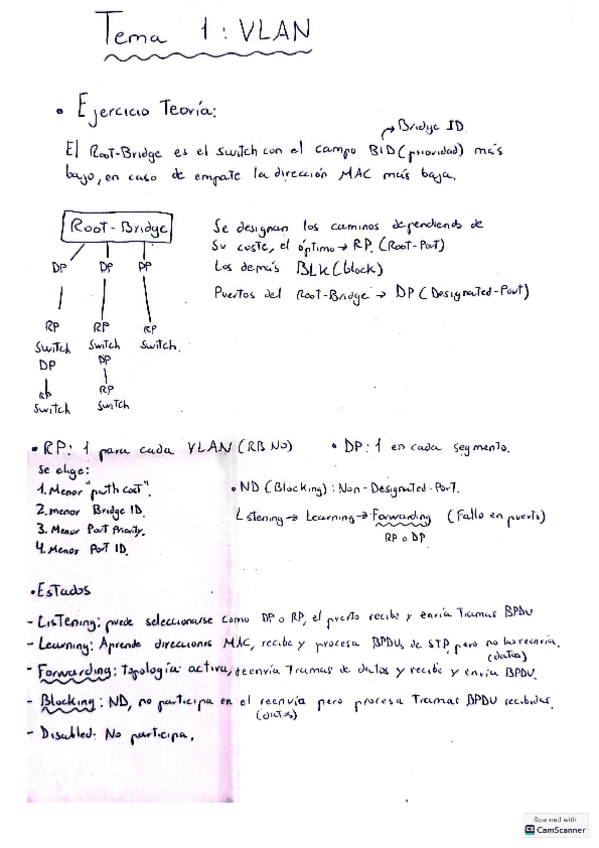 Tema 1: VLAN
• Ejercicio Teoría:
→ Bridge ID
El Root-Bridge es el switch con el campo BID (prioridad) más
bajo, en caso de empate la dirección MAC más baja.
Root-Bridge
DP DP DP
RP RP RP
Switch Switch Switch.
DP DP
RP
Switch Switch
Se designan los caminos dependiendo de
su coste, el óptimo → RP. (Root-Port)
Los demás BLK (block)
Puertos del Root-Bridge → DP (Designated-Port)
• RP: 1 para cada VLAN (RB NO)
Se elige:
1. Menor "path cost".
2. menor Bridge ID.
3. Menor Port Priority.
4. Menor Port ID.
• DP: 1 en cada segmento.
• ND (Blocking): Non-Designated-Port.
Listening → Learning → Forwarding (Fallo en puerto)
RP o DP
• Estados
- Listening: puede seleccionarse como DP o RP, el puerto recibe y envía Tramas BPDU
- Learning: Aprende direcciones MAC, recibe y procesa BPDUs de STP, pero no las reenvía.
(datos)
- Forwarding: Topología activa, reenvía Tramas de datos y recibe y envía BPDU.
- Blocking: ND, no participa en el reenvía pero procesa Tramas BPDU recibidas.
(datos)
- Disabled: No participa.
Scanned with
CS CamScanner